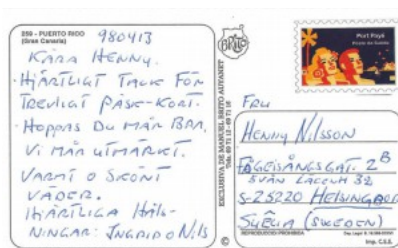 259 - PUERTO RICO
(Gran Canaria)
980413
KÄRA HENNY.
HJÄRTLIGT TACK FÖR
TREVLIGT PÅSK-KORT.
HOPPAS DU MÅR BRA.
VI MÅR UTMÄRKT.
VARMT O SKÖNT
VÄDER.
HJÄRTLIGA HÄLS-
NINGAR: INGRID O NILS
BRITO
EXCLUSIVA DE MANUEL BRITO AUYANET
Port Payé
FRU
HENNY NILSSON
FÅGELSÅNGSGAT. 2B
32
S-25220 HELSINGBORG
SUÈCIA (SWEDEN)
REPRODUCCIÓN PROHIBIDA
Imp. C.E.E.